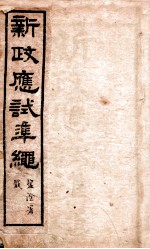 新政應試準繩